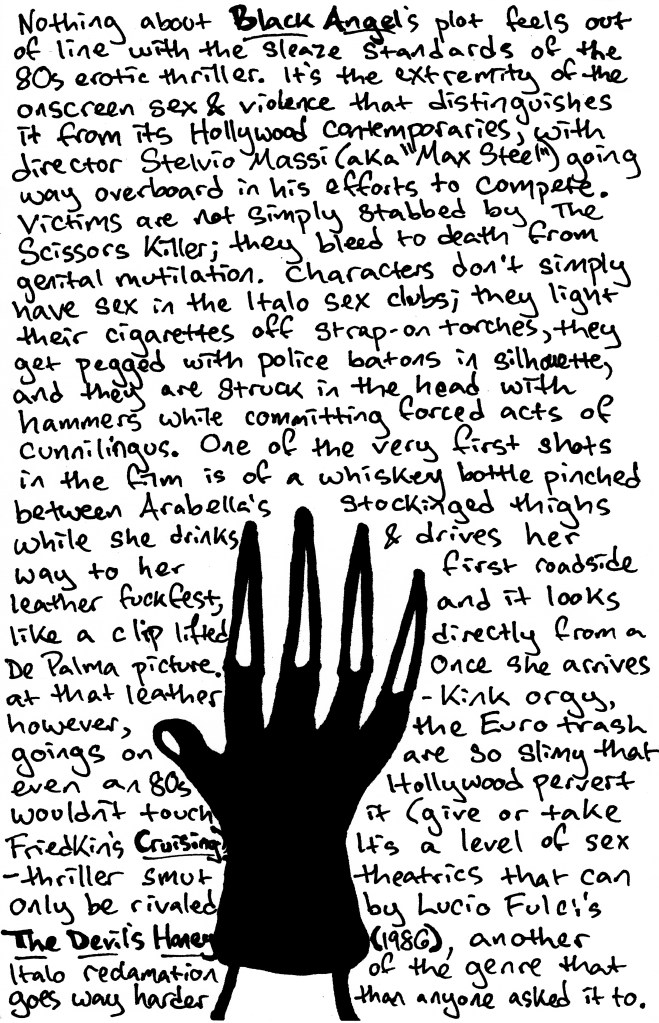 Nothing about Black Angel's plot feels out
of line with the sleaze standards of the
80s erotic thriller. It's the extremity of the
onscreen sex & violence that distinguishes
it from its Hollywood contemporaries, with
director Stelvio Massi (aka "Max Steel") going
way overboard in his efforts to compete.
Victims are not simply stabbed by The
Scissors Killer; they bleed to death from
genital mutilation. Characters don't simply
have sex in the Italo sex clubs; they light
their cigarettes off strap-on torches, they
get pegged with police batons in silhouette,
and they are struck in the head with
hammers while committing forced acts of
cunnilingus. One of the very first shots
in the film is of a whiskey bottle pinched
between Arabella's stockinged thighs
while she drinks & drives her
way to her first roadside
leather fuckfest, and it looks
like a clip lifted directly from a
De Palma picture. Once she arrives
at that leather-kink orgy,
however, the Eurotrash
goings on are so slimy that
even an 80s Hollywood pervert
wouldn't touch it (give or take
Friedkin's Cruising) It's a level of sex
-thriller smut theatrics that can
only be rivaled by Lucio Fulci's
The Devil's Honey (1986), another
Italo reclamation of the genre that
goes way harder than anyone asked it to.